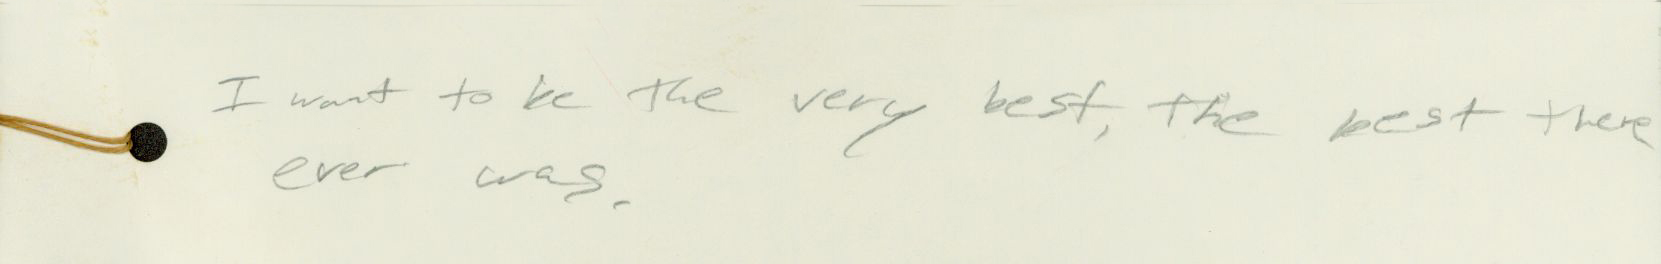 I want to be the very best, the best there
ever was.